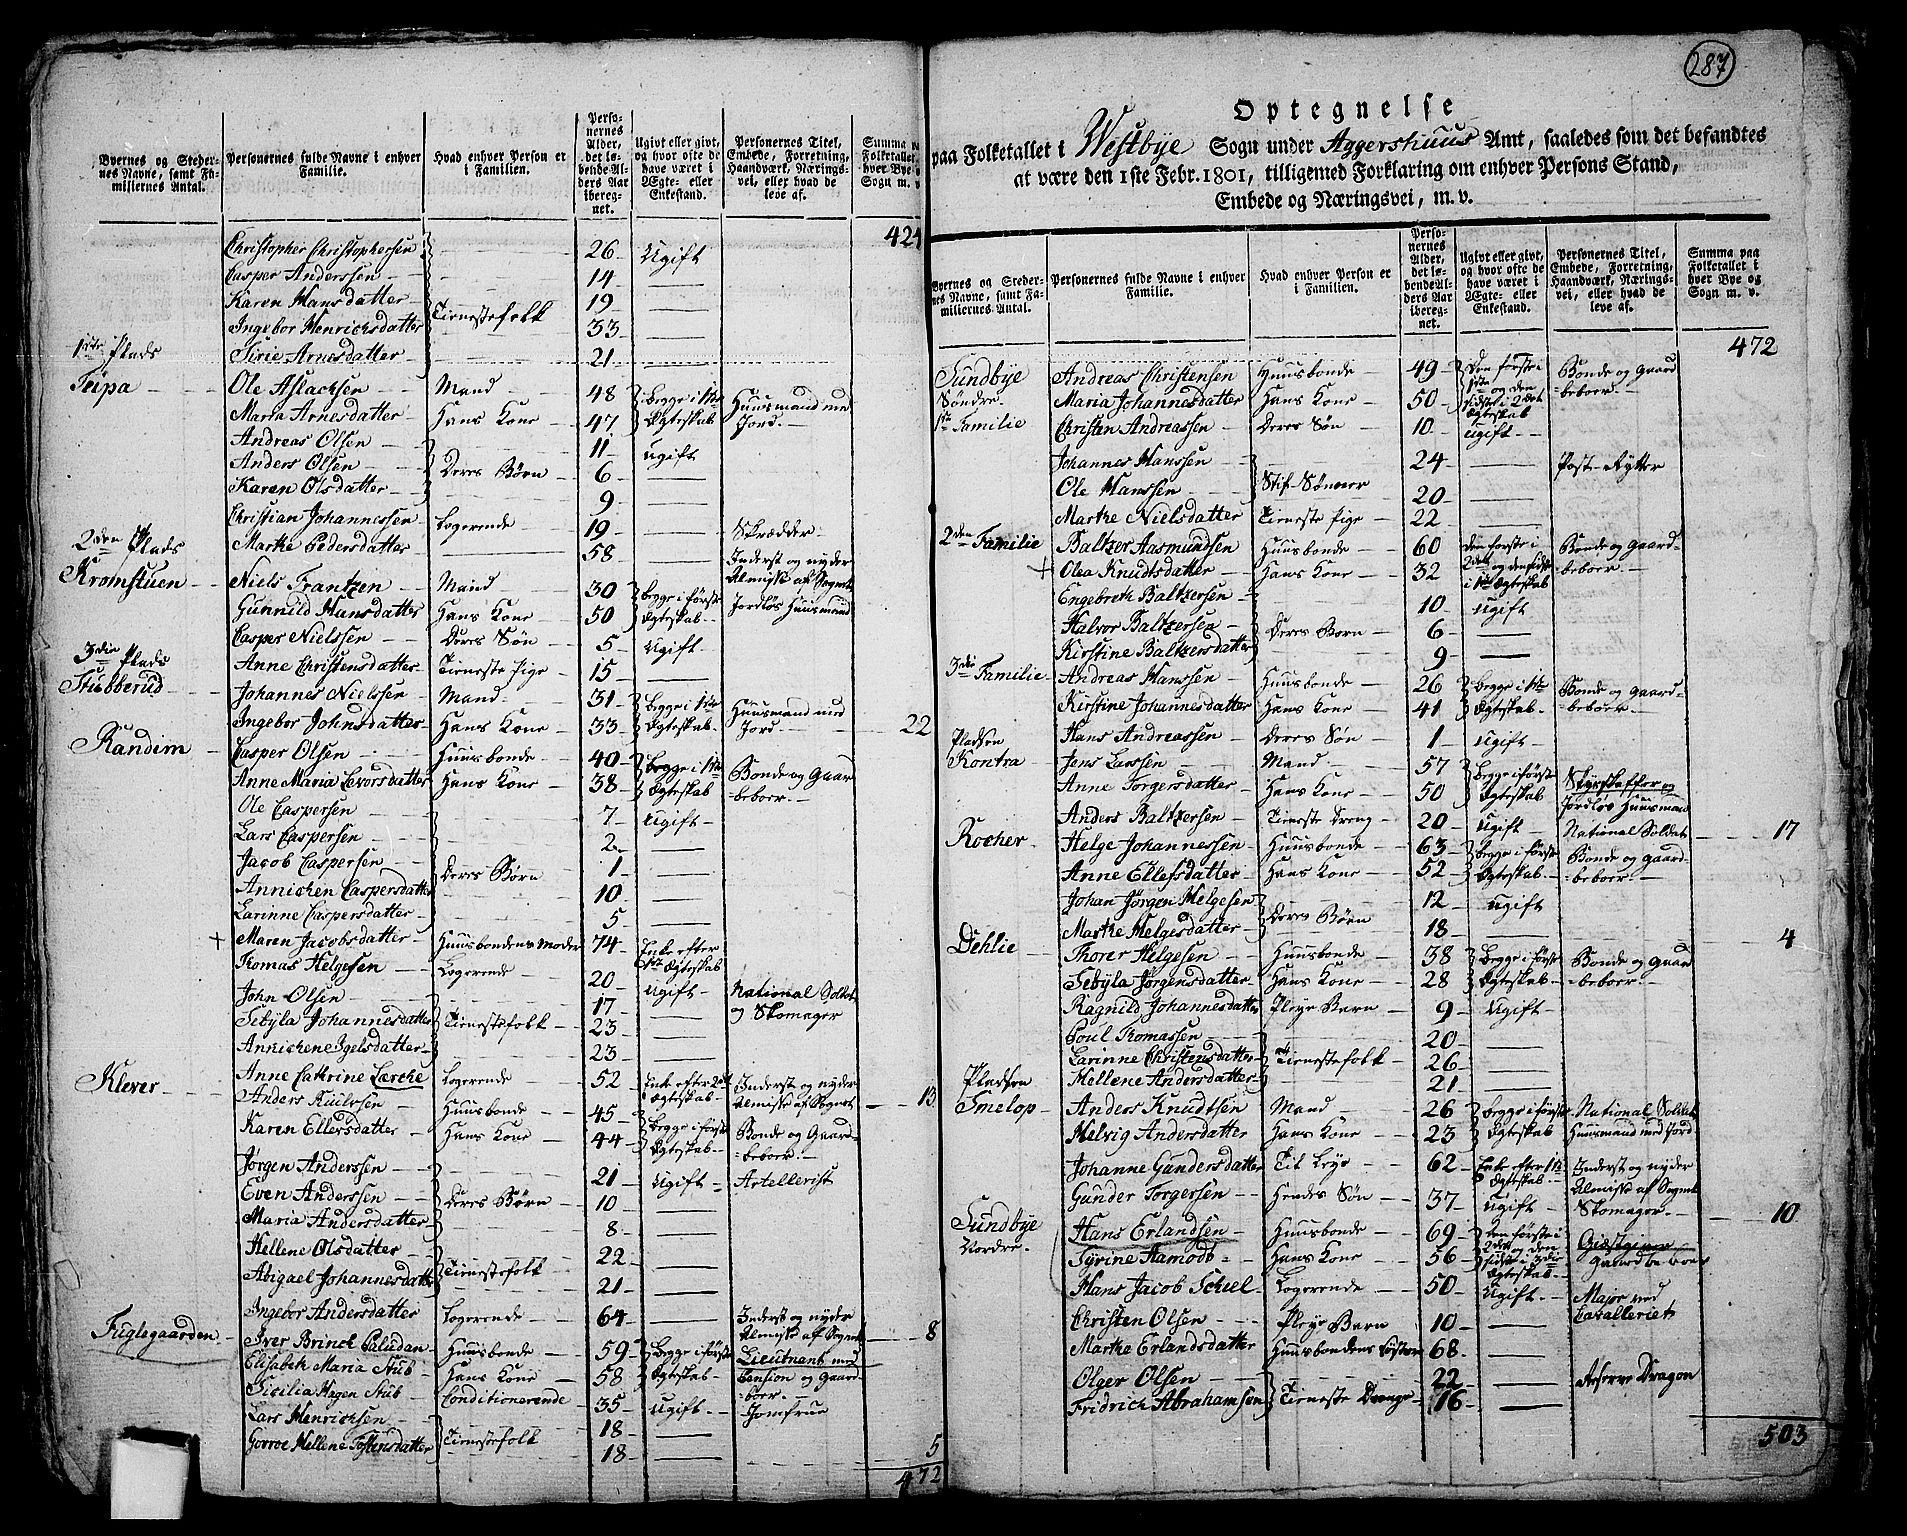 287
Byernes og Steder-
nes Navne, samt Fa-
miliernes Antal.
Personernes fulde Navne i enhver
Familie.
Hvad enhver Person er
i Familien.
Perso-
nernes
Alder,
det lø-
bende Al-
ders Aar
ibereg-
net.
Ugivt eller givt,
og hvor ofte de
have været i
Ægte- eller
Enkestand.
Personernes Titel,
Embede, Forretning,
Haandværk, Nærings-
vei, eller hvad de
leve af.
Summa
Folketallet
hver Bye
Sogn m. v.
424
Christopher Christophersen — 26 — Ugift
Casper Anderssen — 14 —
Karen Hansdatter — 19 —
Ingebor Henrichsdatter Tienestefolk 33 —
1ste Plads Sirie Arnesdatter — 21 —
Teipa — Ole Aslachsen Mand — 48 Begge i 1ste Huusmand med
Maria Arnesdatter Hans Kone — 47 Ægteskab Jord. —
Andreas Olsen — 11 — ugift
Anders Olsen Deres Børn — 6 —
Karen Olsdatter — 9 —
Christian Johannessen Logerende — 19 — Skrædder
2den Plads Marthe Pedersdatter — 58 — Inderst og nyder
Kromstuen — Niels Frantzen Mand — 30 Begge i første Almisse af Sognet
Gunnild Hansdatter Hans Kone — 50 Ægteskab. Jordløs Huusmand
Casper Nielssen Deres Søn — 5 — Ugift
3die Plads Anne Christensdatter Tieneste Pige — 15 —
Stubberud — Johannes Nielssen Mand — 31 Begge i 1ste Huusmand med
Ingebor Johnsdatter Hans Kone — 33 Ægteskab. Jord — 22
Randim — Casper Olsen Huusbonde — 40 Begge i 1ste Bonde og Gaard
Anne Maria Evorsdatter Hans Kone — 38 Ægteskab beboer. —
Ole Caspersen — 7 — ugift
Lars Caspersen — 2 —
Jacob Caspersen Deres Børn — 1 —
Annichen Caspersdatter — 10 —
Larinne Caspersdatter — 5 —
+ Maren Jacobsdatter Huusbondens Moder 74 Enke efter
Thomas Helgesen Logerende — 20 — 1ste Ægteskab ugift National Soldat
John Olsen — 17 — og Skomager
Sebÿla Johannesdatter Tienestefolk — 23 —
Annichene Igelsdatter — 23 —
Klever — Anne Cathrine Lærche Logerende — 52 Enke efter 2det Inderst og nyder
Anders Huusbonde — 45 Ægteskab. Almisse af Sognet — 13
Karen Ellersdatter Hans Kone — 44 Begge i første Ægteskab. Bonde og Gaard-
beboer. —
Jørgen Anderssen — 21 — Ugift Artellerist
Even Anderssen Deres Børn — 10 —
Maria Andersdatter — 8 —
Hellene Olsdatter — 22 —
Abigael Johannesdatter Tienestefolk — 21 —
Ingebor Andersdatter Logerende — 64 — Inderst og nyder
Fuglegaarden — Iver Brinck Paludan Huusbonde — 59 Begge i første Almisse af Sognet — 8
Elisabeth Maria Stub Hans Kone — 58 Ægteskab. Lieutnant med
Pension og Gaard
Sicilia Hagen Stub Conditionerende 35 — ugift beboer. Jomfrue
Lars Henrichsen — 18 —
Gorroe Hellene Tostensdatter Tienestefolk 18 — 5
472
Optegnelse
paa Folketallet i Westbÿe Sogn under Aggershuus Amt, saaledes som det befandtes
at være den 1ste Febr. 1801, tilligemed Forklaring om enhver Persons Stand,
Embede og Næringsvei, m. v.
Byernes og Steder-
nes Navne, samt Fa-
miliernes Antal.
Personernes fulde Navne i enhver
Familie.
Hvad enhver Person er
i Familien.
Perso-
nernes
Alder,
det lø-
bende Al-
ders Aar
iberegnet.
Ugivt eller givt,
og hvor ofte de
have været i
Ægte- eller
Enkestand.
Personernes Titel,
Embede, Forretning,
Haandværk, Nærings-
vei, eller hvad de
leve af.
Summa paa
Folketallet i
hver Bye og
Sogn m. v.
472
Sundbÿe Andreas Christensen Huusbonde — 49 Den første i 1ste Bonde og Gaard
Søndre. Maria Johannesdatter Hans Kone — 50 og den sidste i 2det beboer. —
1ste Familie Christen Andreassen Deres Søn — 10 Ægteskab ugift. —
Johannes Hanssen — 24 — Post-Rytter
Ole Hanssen Stif-Sønner — 20 —
Marthe Nielsdatter Tieneste Pige — 22 —
2den Familie Baltzer Aasmundsen Huusbonde — 60 den første i Bonde og Gaard-
+ Olea Knudtsdatter Hans Kone — 32 2det og den sidste beboer. —
i 1ste Ægteskab
Engebreth Baltzersen — 10 — ugift
Halvor Baltzersen Deres Børn — 6 —
Kirstine Baltzersdatter — 9 —
3die Familie Andreas Hanssen Huusbonde — 26 Begge i 1ste Bonde og Gaard-
Kirstine Johannesdatter Hans Kone — 41 Ægteskab. beboer. —
Pladsen Hans Andreassen Deres Søn — 1 — ugift
Kontra Jens Larssen Mand — 57 Begge i første Skydskaffer og
Anne Torgersdatter Hans Kone — 50 Ægteskab Jordløs Huusmand
Anders Baltzersen Tieneste Dreng — 20 — ugift National Soldat — 17
Rocher — Helge Johannessen Huusbonde — 63 Begge i første Bonde og Gaard
Anne Ellefsdatter Hans Kone — 52 Ægteskab. beboer. —
Johan Jørgen Helgesen — 12 — ugift
Marthe Helgesdatter Deres Børn — 18 — 4
Dehlie — Thorer Helgesen Huusbonde — 38 Begge i første Bonde og Gaard
Sebÿla Jørgensdatter Hans Kone — 28 Ægteskab. beboer. —
Ragnild Johannesdatter Pleye Barn — 9 — Ugift
Poul Thomassen — 20 —
Larinne Christensdatter Tienestefolk — 26 —
Pladsen Hellene Andersdatter — 21 —
Smelop — Anders Knudtsen Mand — 26 Begge i første National Soldat
Helvig Andersdatter Hans Kone — 23 Ægteskab Huusmand med Jord
Johanne Gundersdatter Til Leye — 62 Enke efter 1ste Inderst og nyder
Ægteskab. Almisse af Sognet
Gunder Torgersen Hendes Søn — 37 — ugift Skomager. — 10
Sundbÿe Hans Erlandsen Huusbonde — 69 Den første i 2det og den Giestgiver
Nordre. Sÿrine Hamodt Hans Kone — 56 sidste i 3die Ægteskab. Gaardbeboer
Hans Jacob Schiel Logerende — 50 Ugift. Major ved
Cavalleriet
Christen Olsen Pleye Barn — 10 —
Marthe Erlandsdatter Huusbondens Søster 68 —
Olger Olsen — 22 — Reserve Dragon
Fridrich Abrahamsen Tieneste Drenge 16 —
503